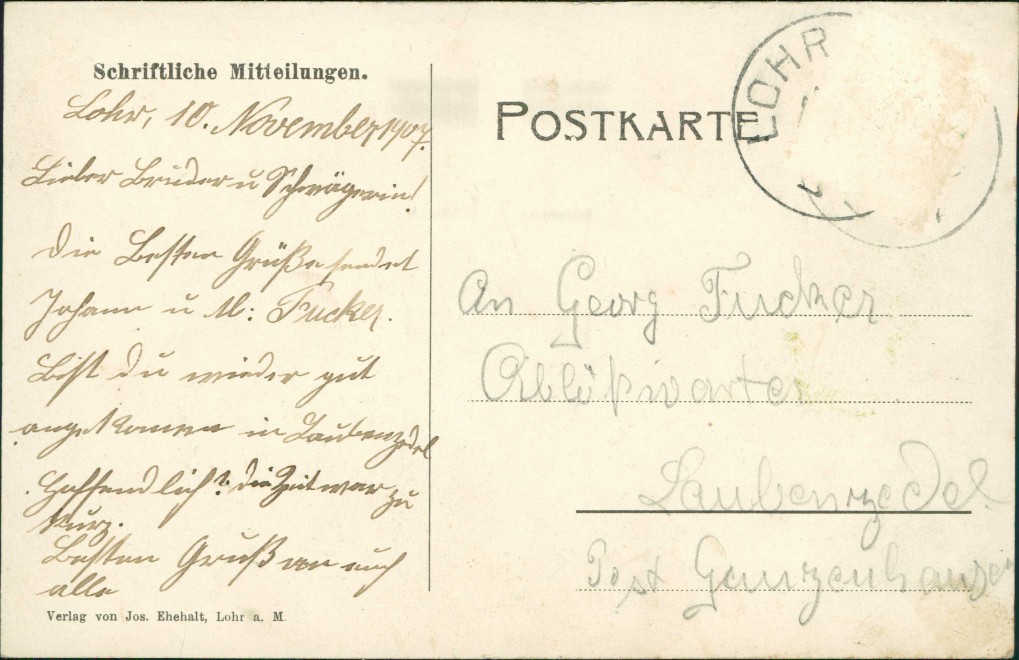 Schriftliche Mitteilungen.
Lohr, 10. November 1907.
Lieber Bruder u Schwägerin!
Die Besten Grüße sendet
Johann u M: Fucker.
Bist du wieder gut
angekomen in Laubenzedel
Hoffendlich? die Zeit war zu
kurz.
Besten Gruß an euch
alle
Verlag von Jos. Ehehalt, Lohr a. M.
POSTKARTE
LOHR
An Georg Fucker
Ablößwarter
Laubenzedel
Post Gunzenhausen